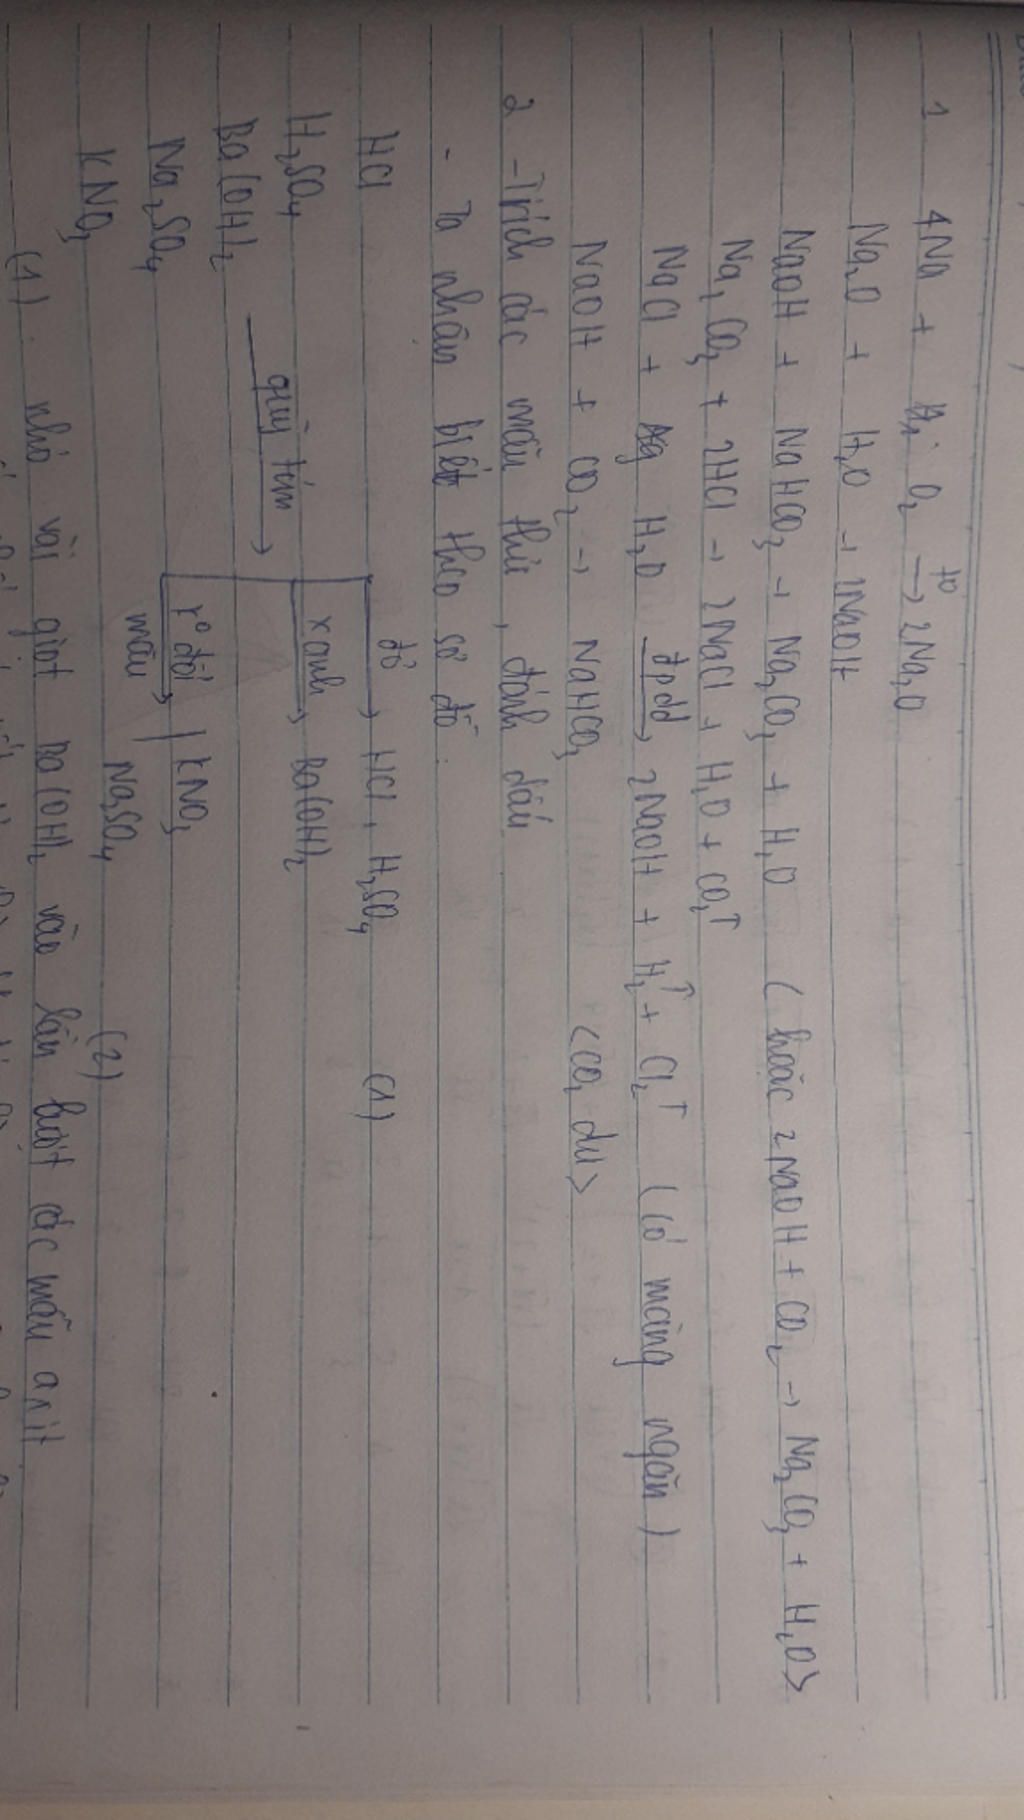 1 4Na + O₂ →(t°) 2Na₂O
Na₂O + H₂O → 2NaOH
NaOH + NaHCO₃ → Na₂CO₃ + H₂O (hoặc 2NaOH + CO₂ → Na₂CO₃ + H₂O)
Na₂CO₃ + 2HCl → 2NaCl + H₂O + CO₂↑
NaCl + H₂O →(đpdd) 2NaOH + H₂↑ + Cl₂↑ (có màng ngăn)
NaOH + CO₂ → NaHCO₃ <CO₂ dư>
2 - Trích các mẫu thử, đánh dấu
- Ta nhận biết theo sơ đồ:
HCl đỏ → HCl, H₂SO₄ (1)
H₂SO₄ quỳ tím → xanh → Ba(OH)₂
Ba(OH)₂
Na₂SO₄ k° đổi màu → KNO₃
KNO₃ Na₂SO₄ (2)
(1). nhỏ vài giọt Ba(OH)₂ vào lần lượt các mẫu axit